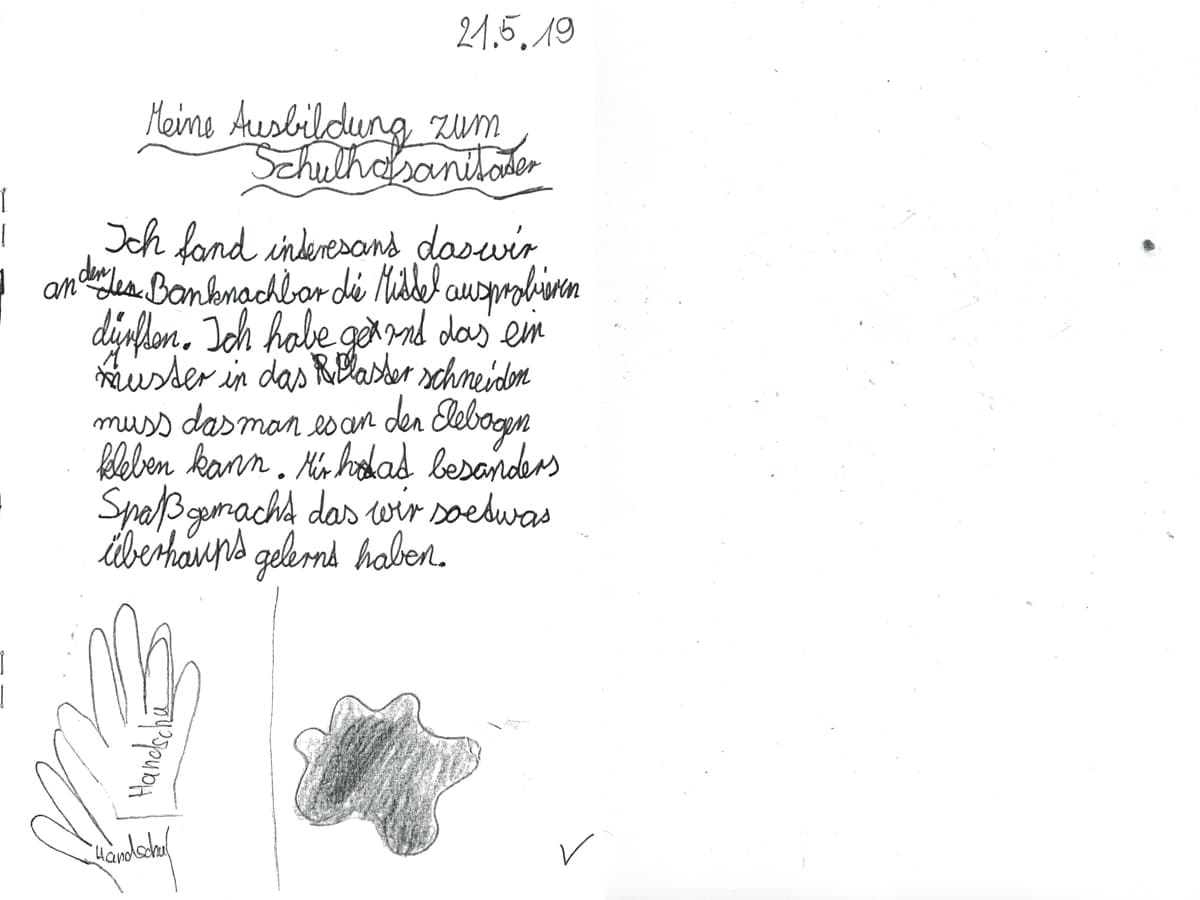 21.5.19
Meine Ausbildung zum
Schulhofsanitäter
Ich fand interesand daswir
an den Banknachbar die Mittel ausprobieren
dürften. Ich habe gelernt das ein
Muster in das Plaster schneiden
muss dasman es an den Elebogen
kleben kann. Mir had besonders
Spaß gemacht das wir soetwas
überhaupt gelernt haben.
Handschu
Handschu